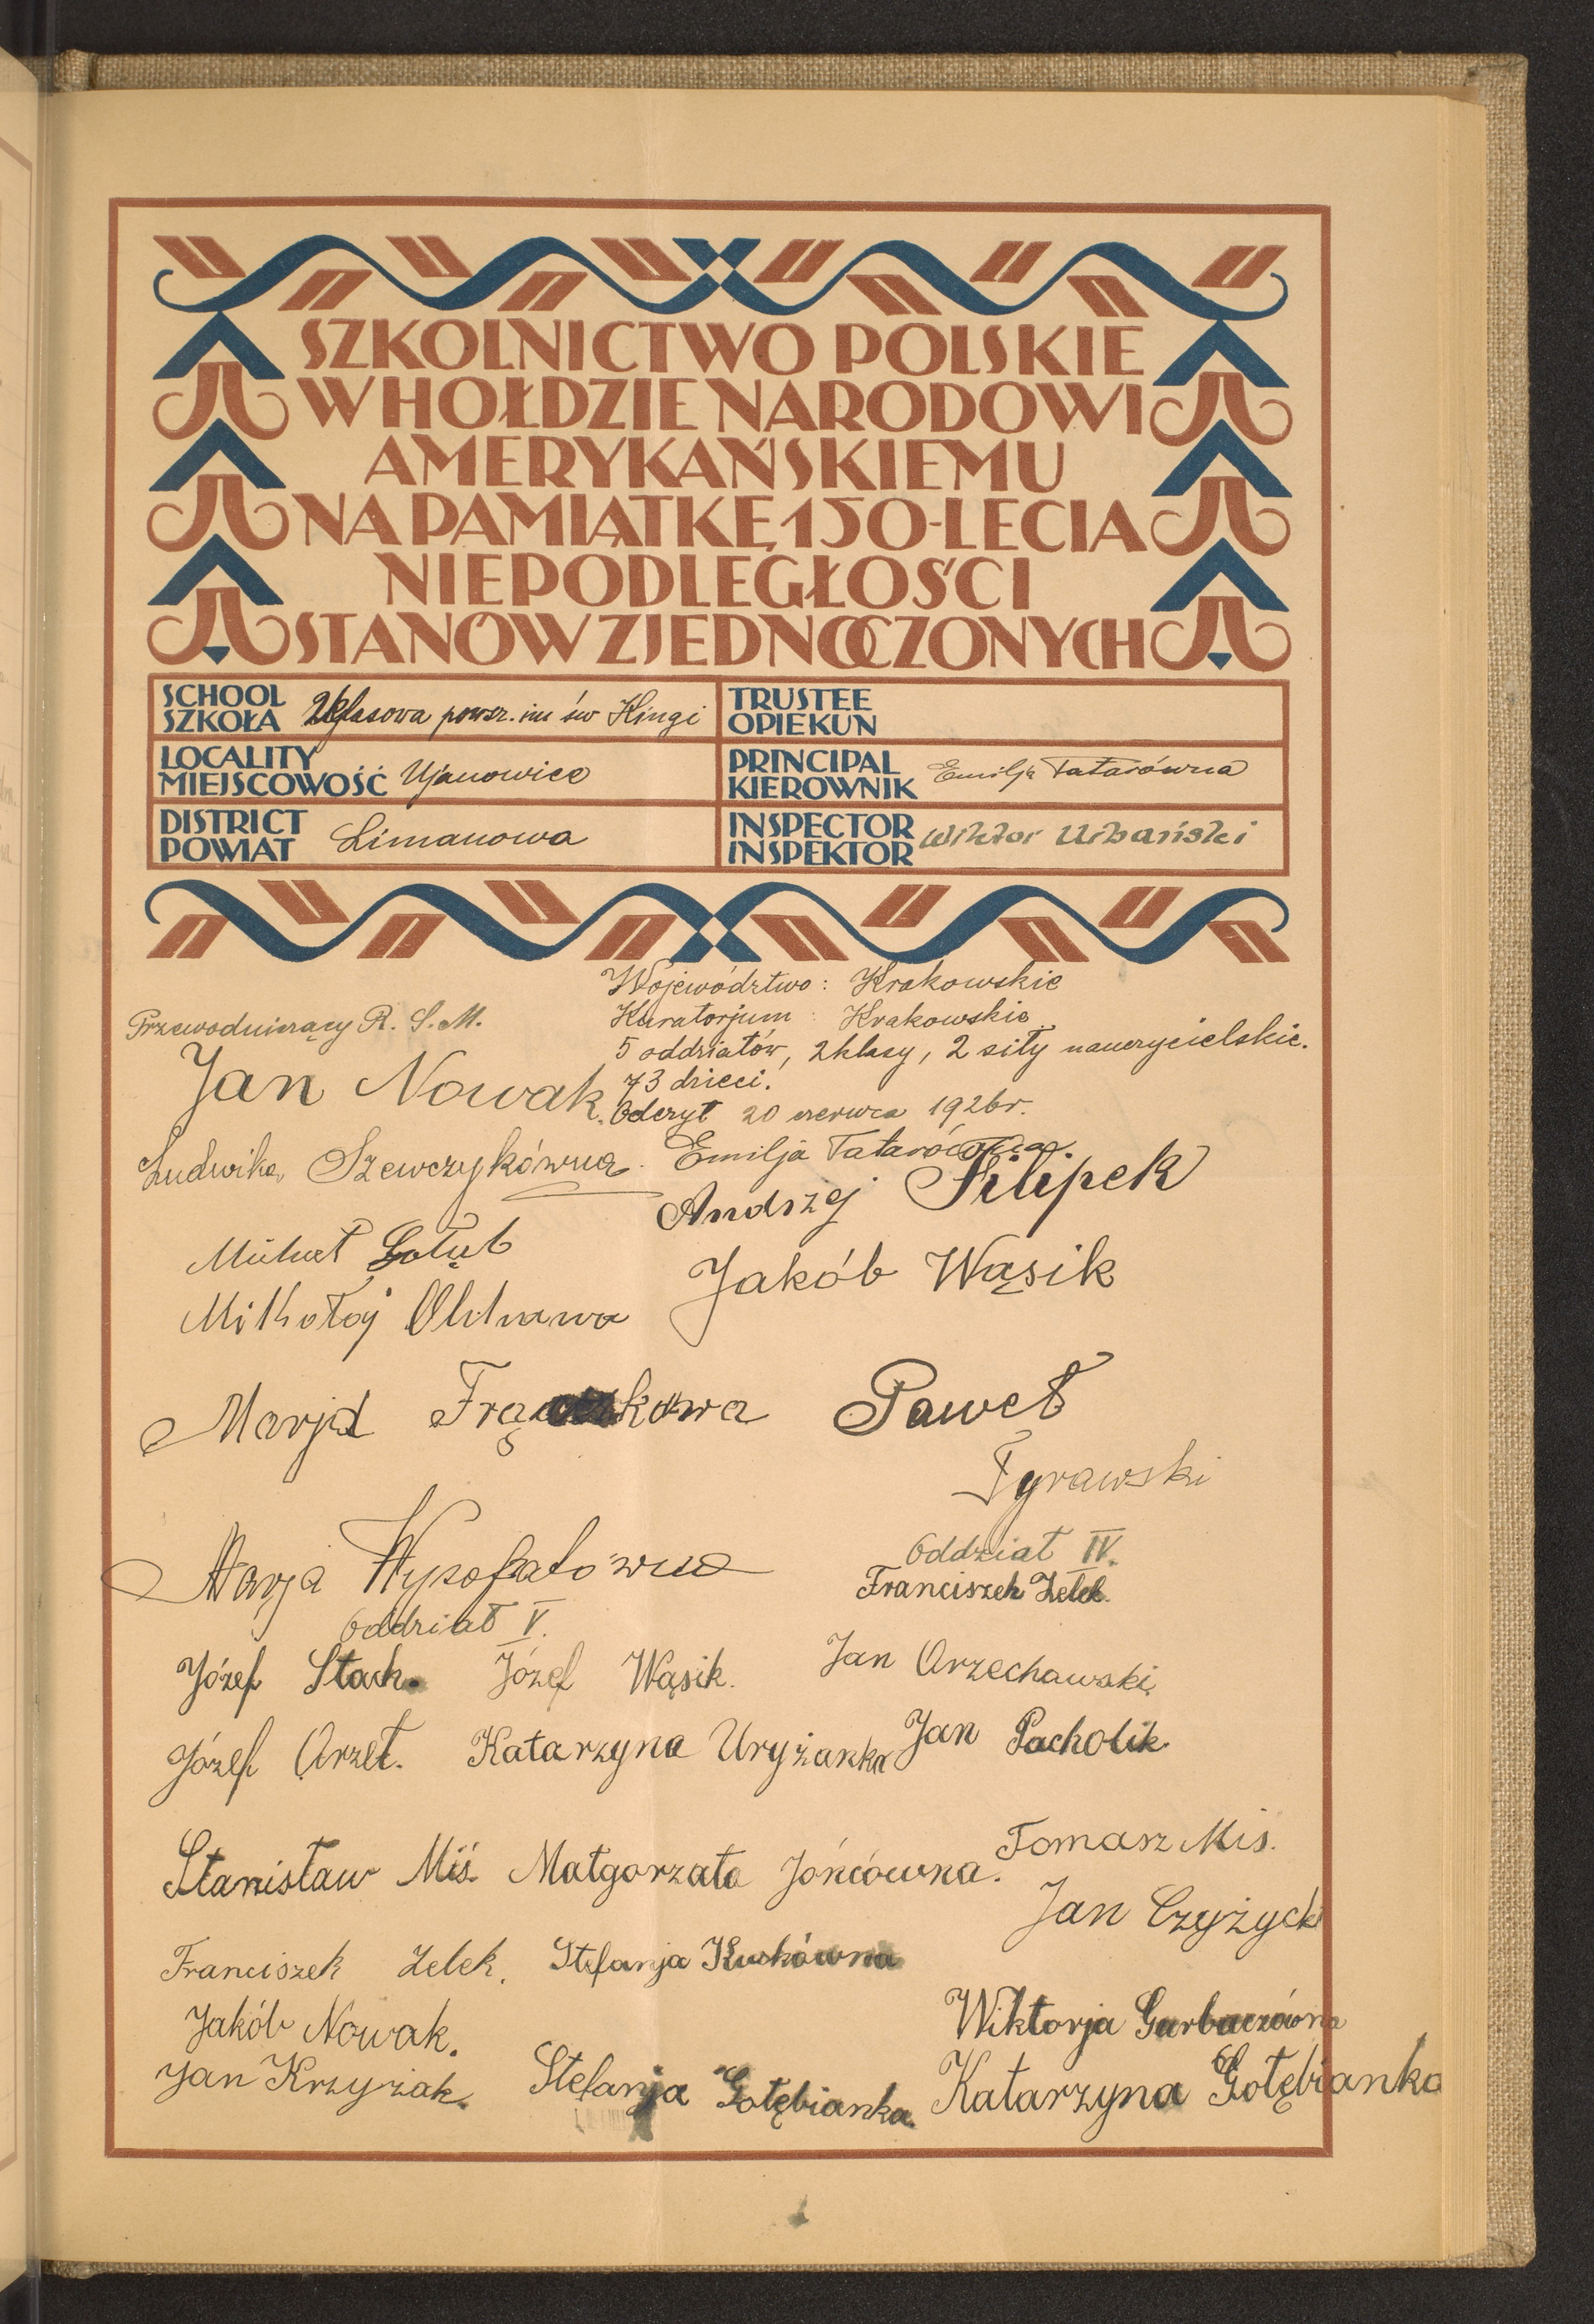 SZKOLNICTWO POLSKIE
W HOŁDZIE NARODOWI
AMERYKAŃSKIEMU
NA PAMIĄTKĘ 150-LECIA
NIEPODLEGŁOŚCI
STANÓW ZJEDNOCZONYCH
SCHOOL
SZKOŁA 2klasowa powsz. im św Kingi
TRUSTEE
OPIEKUN
LOCALITY
MIEJSCOWOŚĆ Ujanowice
PRINCIPAL
KIEROWNIK Emilja Tatarówna
DISTRICT
POWIAT Limanowa
INSPECTOR
INSPEKTOR Wiktor Urbański
Województwo: Krakowskie
Kuratorjum: Krakowskie
5 oddziałów, 2 klasy, 2 siły nauczycielskie.
73 dzieci.
Odczyt 20 czerwca 1926 r.
Przewodniczący R. S. M.
Jan Nowak.
Ludwika Szewczykówna.
Emilja Tatarówna.
Andrzej Filipek
Michał Gołąb
Jakób Wąsik
Mikołaj
Marja
Paweł
Tyrawski
Marja
Oddział V.
Oddział IV.
Franciszek Zelek.
Józef Stach. Józef Wąsik.
Jan Orzechawski
Józef Orzeł. Katarzyna Uryżanka
Jan Pacholik
Stanisław Miś. Małgorzata Jońcówna.
Tomasz Mis.
Jan Czyżycki
Franciszek Zelek. Stefanja Kuskówna
Jakób Nowak.
Wiktorja Garbaczówna
Jan Krzyżak. Stefanja Gołębianka.
Katarzyna Gołębianka